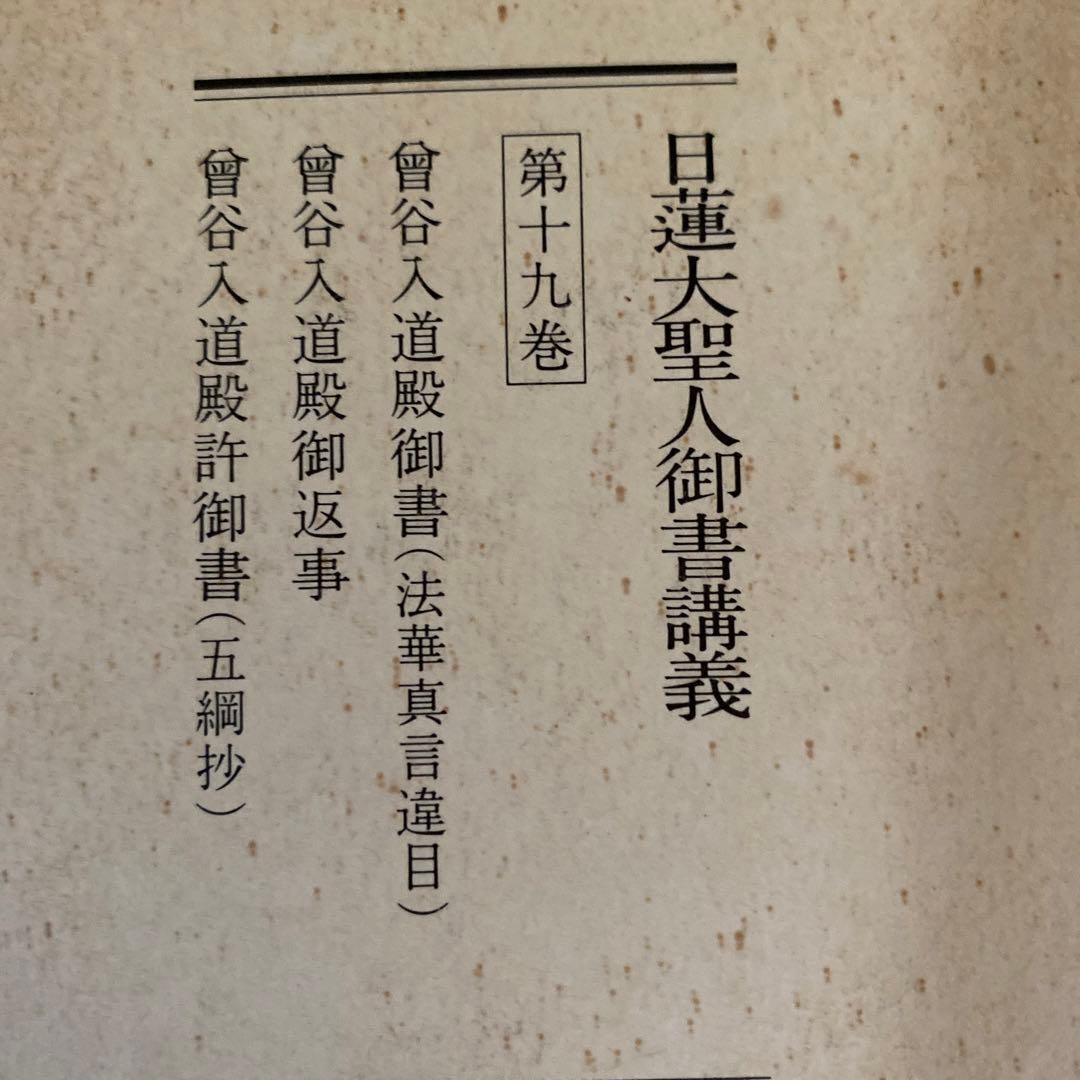 日蓮大聖人御書講義
第十九巻
曾谷入道殿御書(法華真言違目)
曾谷入道殿御返事
曾谷入道殿許御書(五綱抄)